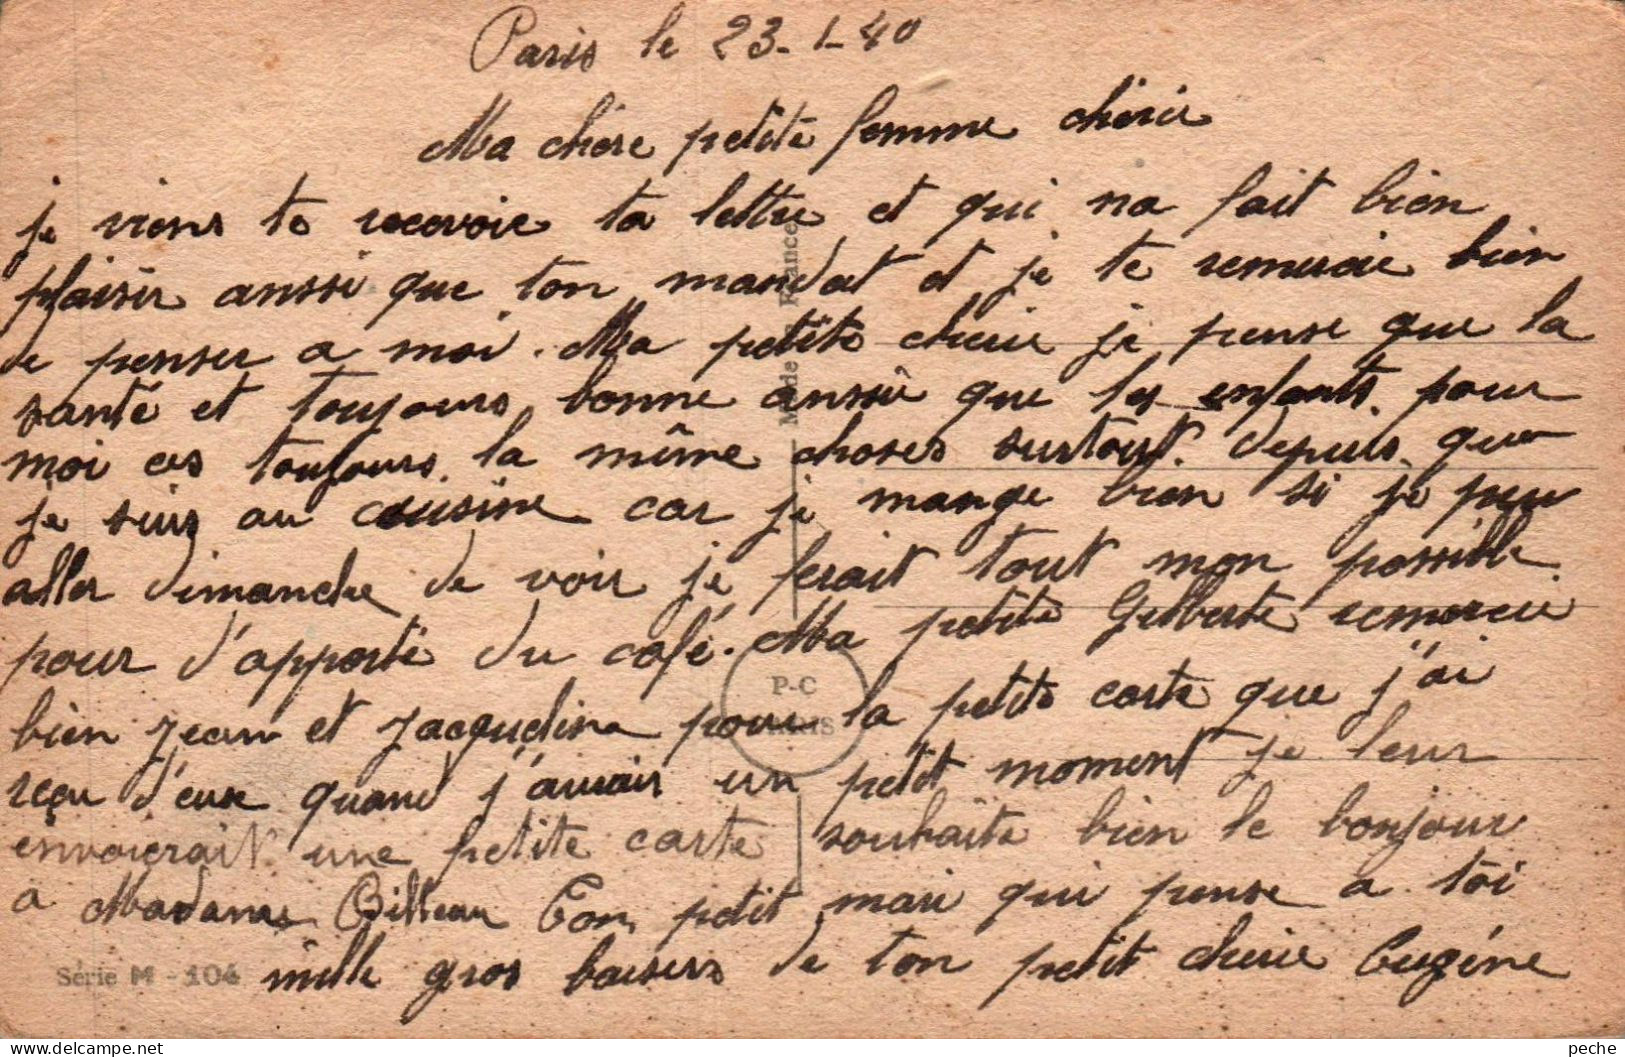 Paris le 23-1-40
Ma chere petite femme cherie
je viens te recevoir ta lettre et qui na fait bien
plaisir anssi que ton mandat et je te remercie bien
de penser a moi. Ma petite cherie je pense que la
santé et toujours bonne anssie que les enfants pour
moi ces toujours la même choses surtout depuis que
je suis au cuisine car je mange bien si je peu
aller dimanche de voir je ferait tout mon possible
pour d'apporté du café. Ma petite Gilberte remercie
bien Jean et Jacqueline pour la petite carte que j'ai
reçu d'eux quand j'aurais un petit moment je leur
envoierait une petite carte souhaite bien le bonjour
a Madame Billeau Ton petit mari qui pense a toi
mille gros baisers de ton petit cherie Eugéne
Mode de France
P-C
PARIS
Série M - 104
peche